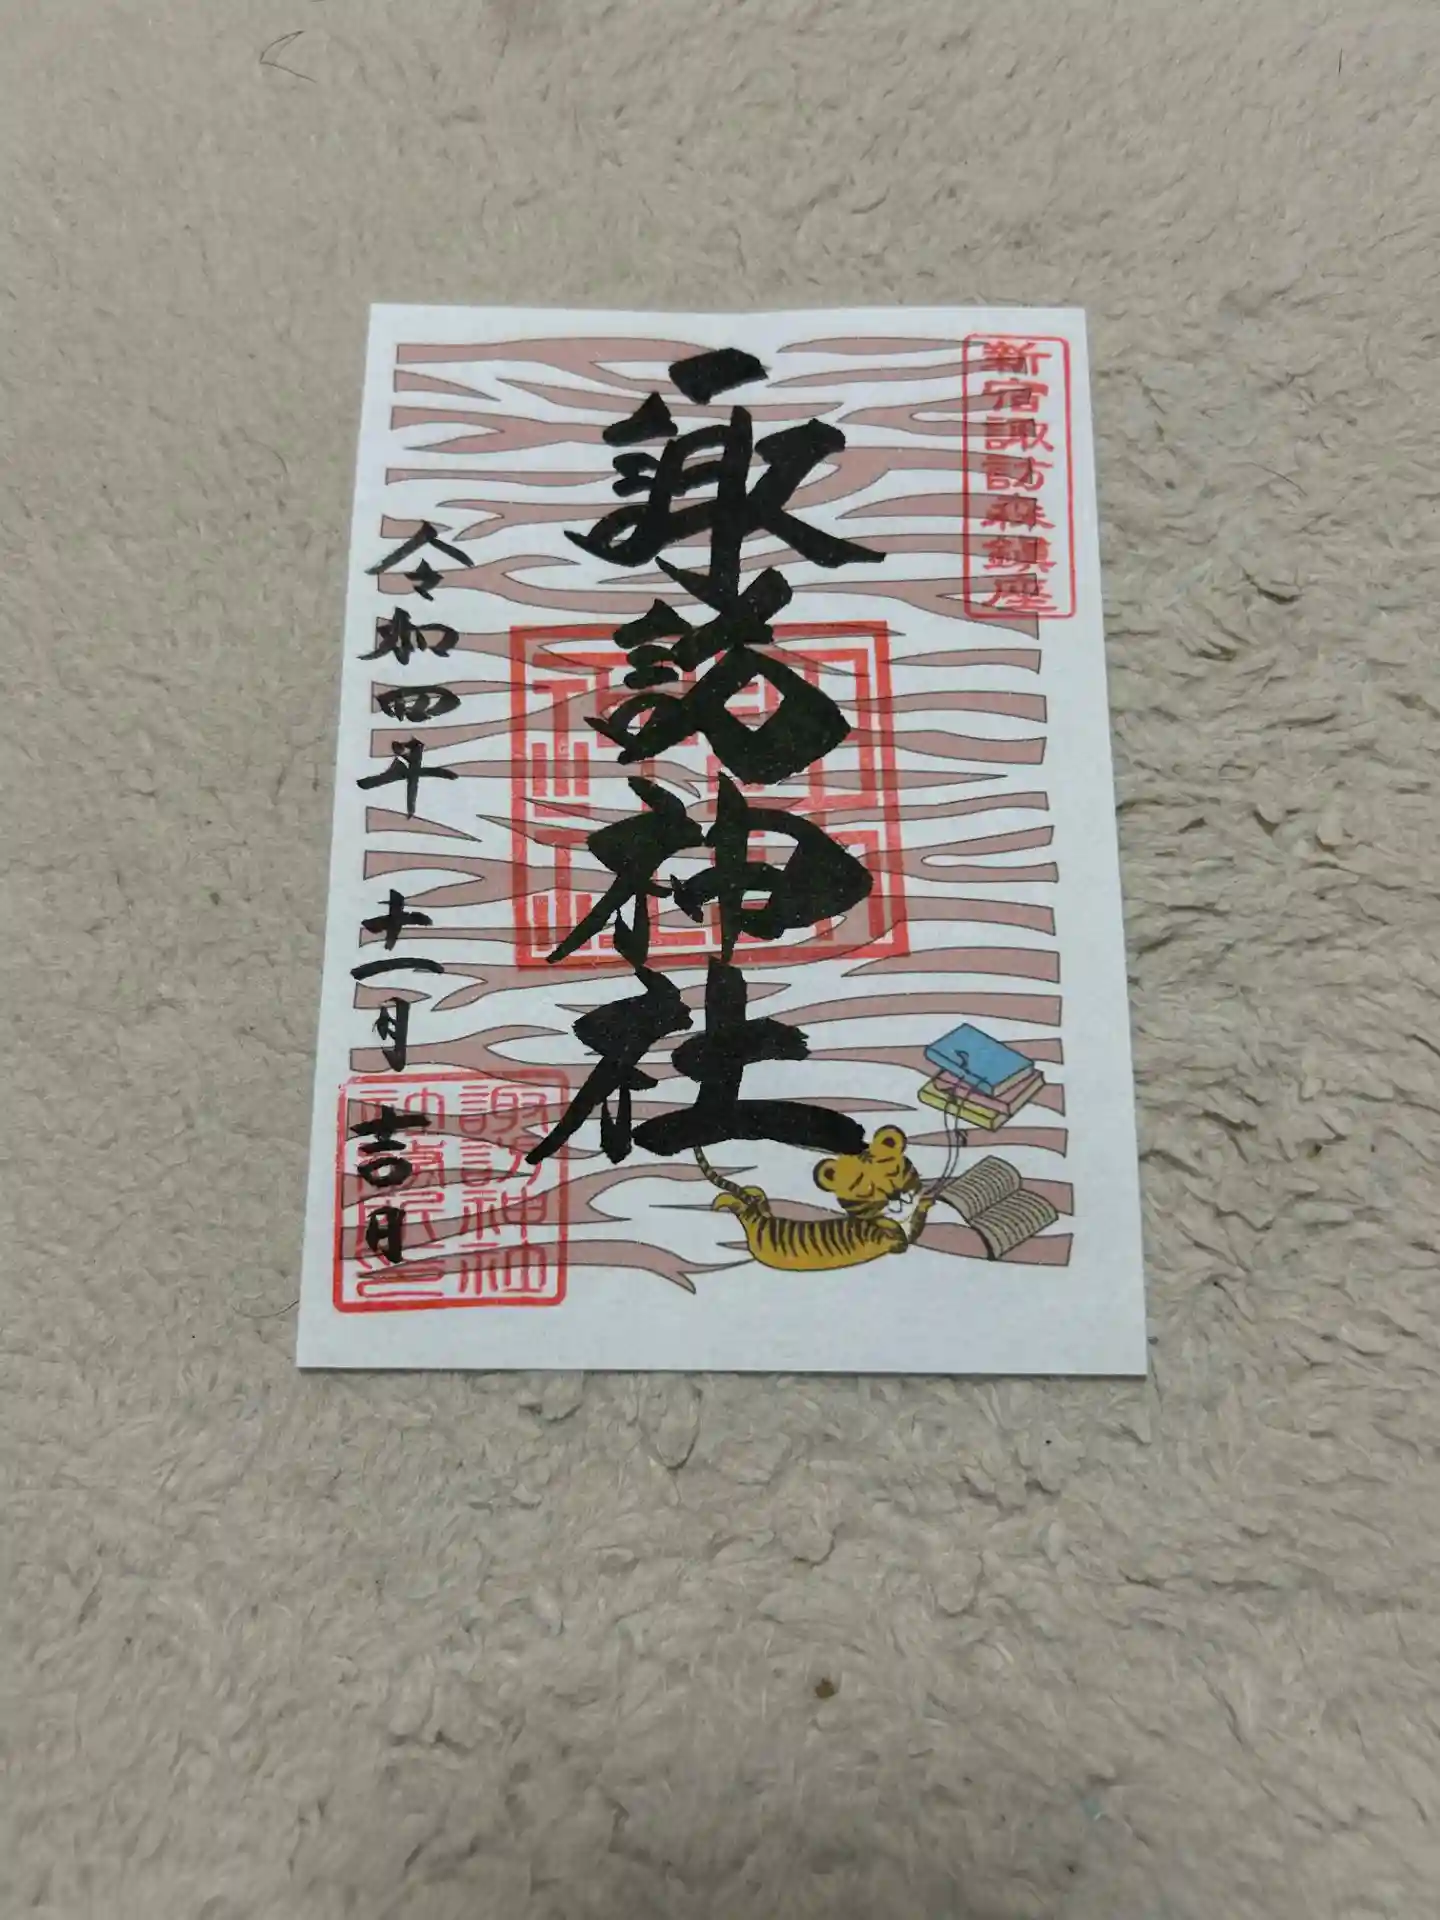 新宿諏訪森鎮座
諏訪神社
令和四年十一月
諏訪神社